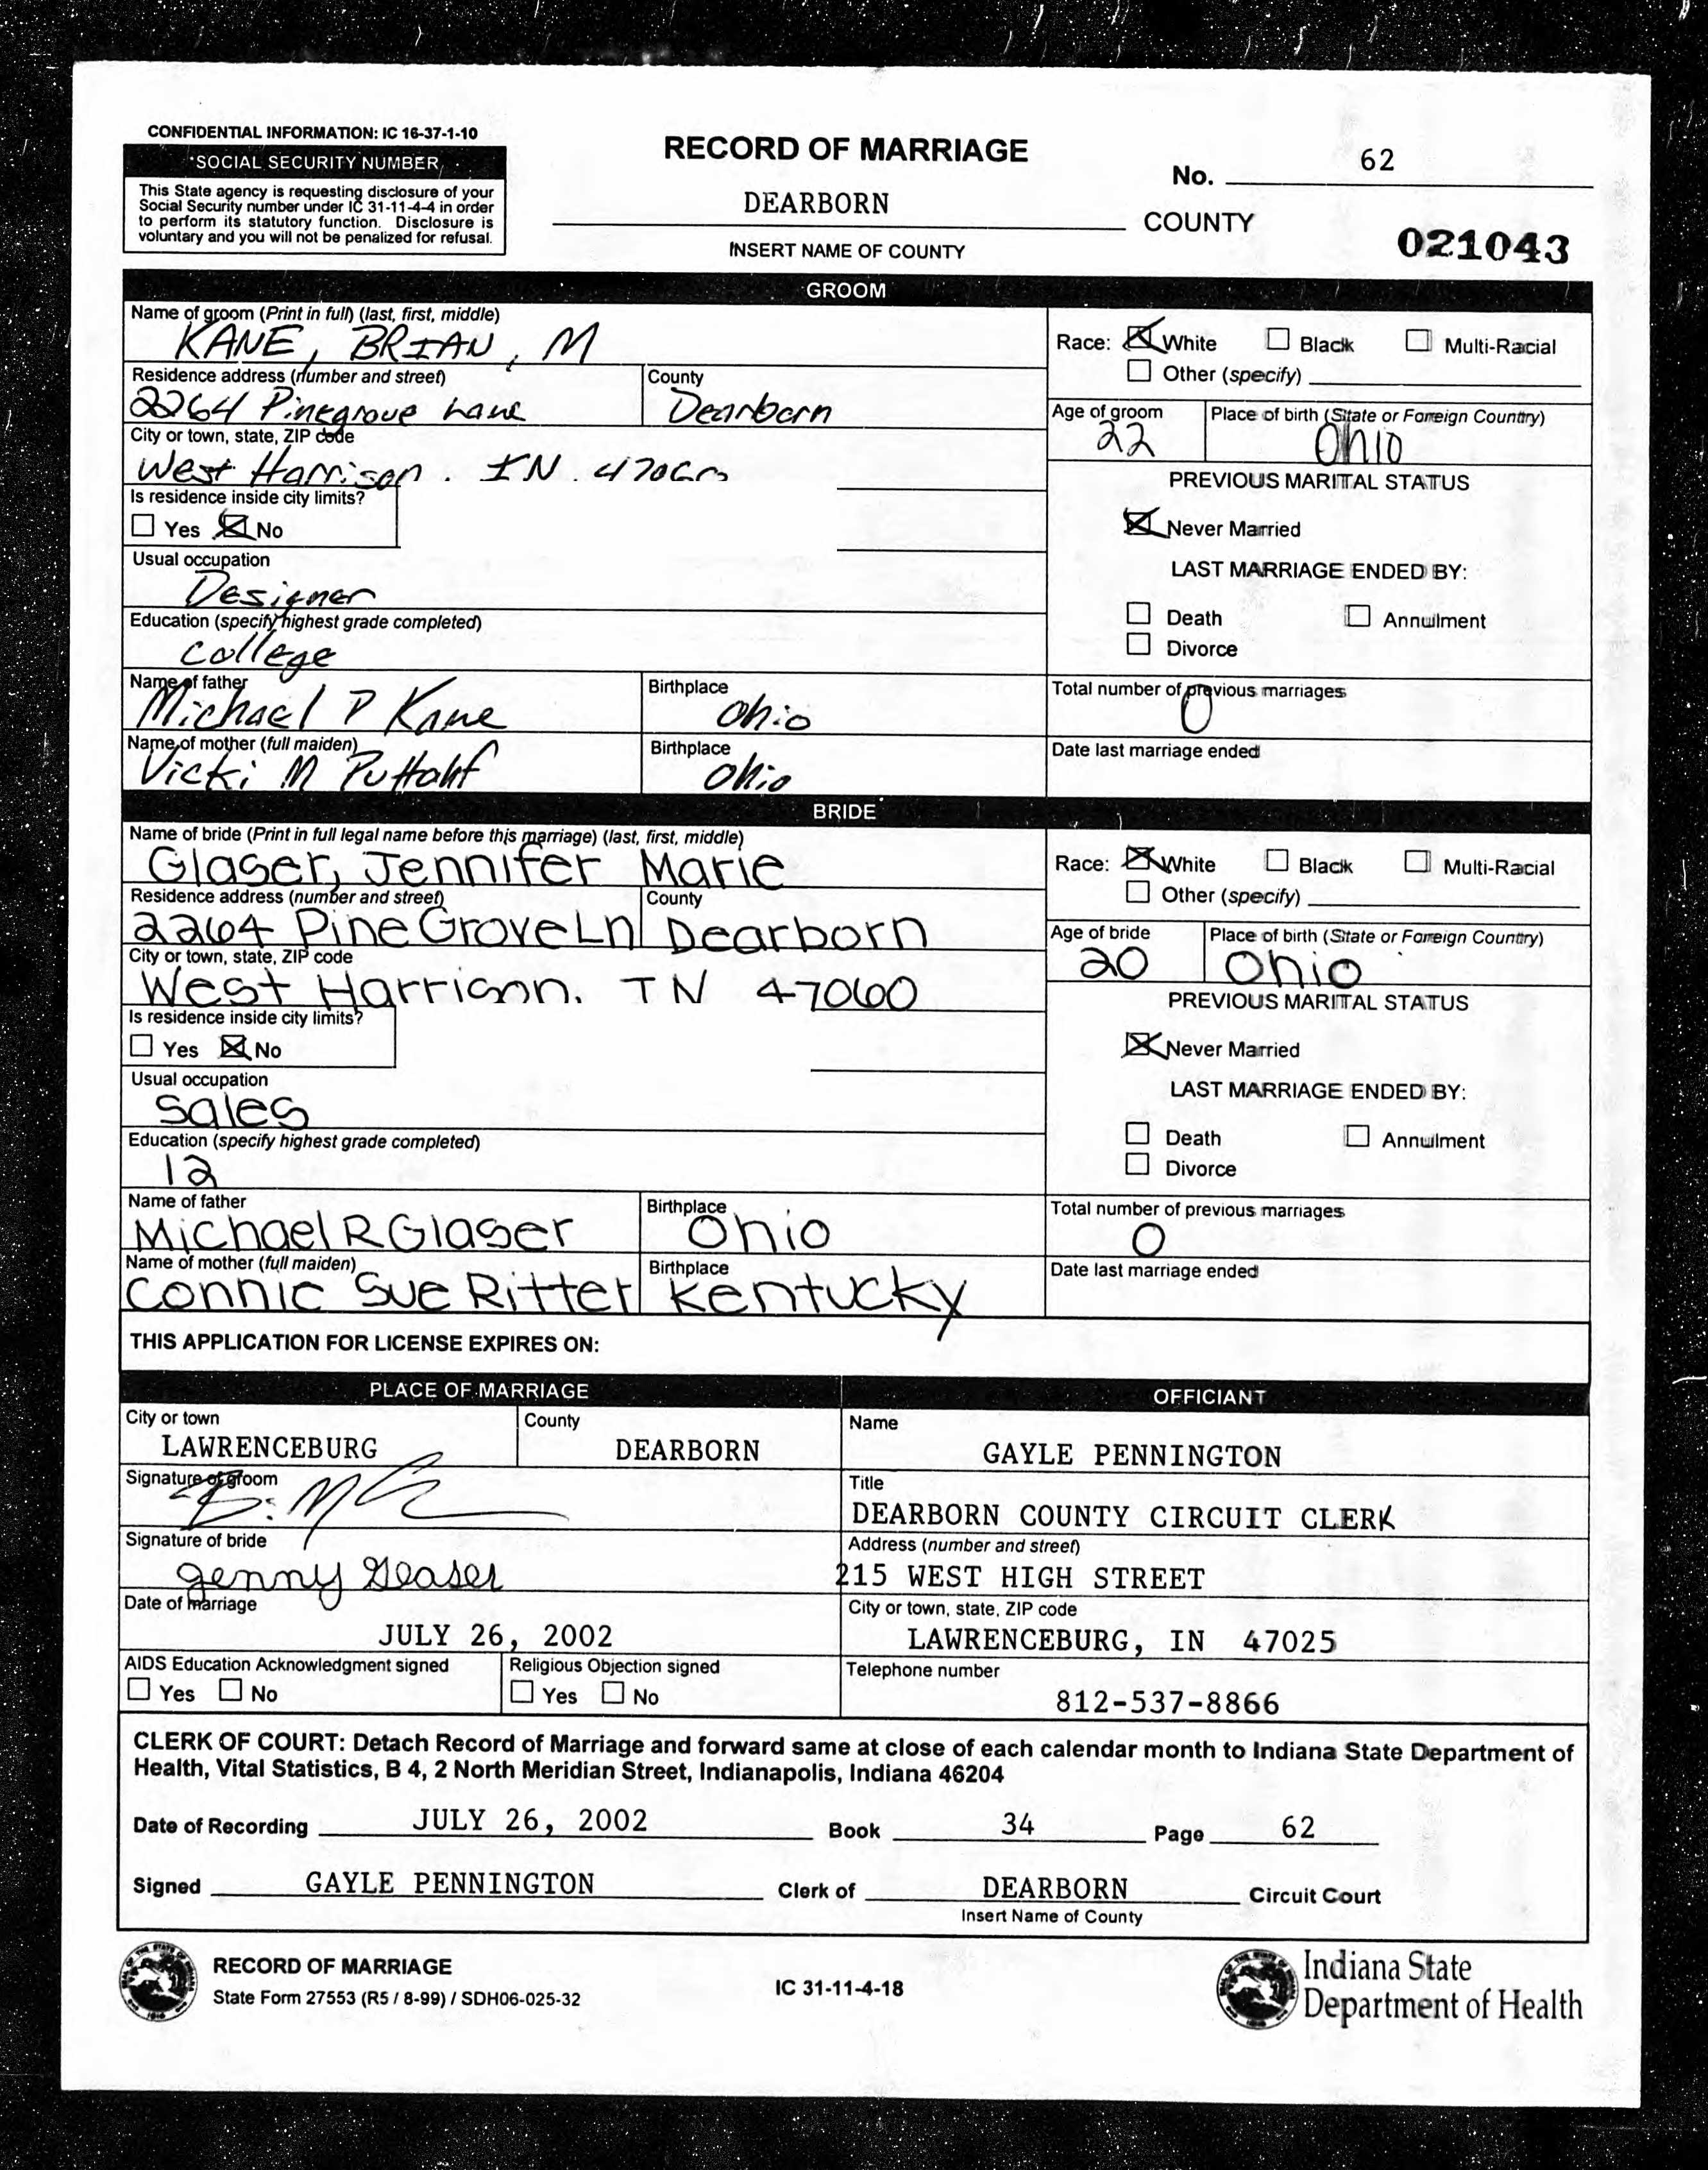 CONFIDENTIAL INFORMATION: IC 16-37-1-10
*SOCIAL SECURITY NUMBER
This State agency is requesting disclosure of your
Social Security number under IC 31-11-4-4 in order
to perform its statutory function. Disclosure is
voluntary and you will not be penalized for refusal.
RECORD OF MARRIAGE
No. 62
DEARBORN COUNTY
INSERT NAME OF COUNTY
021043
GROOM
Name of groom (Print in full) (last, first, middle)
KANE, BRIAN, M
Race: White Black Multi-Racial
Other (specify)
Residence address (number and street) County
2264 Pinegrove Lane Dearborn
Age of groom Place of birth (State or Foreign Country)
22 Ohio
City or town, state, ZIP code
West Harrison, IN, 47060
Is residence inside city limits?
Yes No
PREVIOUS MARITAL STATUS
Never Married
Usual occupation
Designer
LAST MARRIAGE ENDED BY:
Death Annulment
Divorce
Education (specify highest grade completed)
College
Name of father Birthplace
Michael P Kane Ohio
Total number of previous marriages
0
Name of mother (full maiden) Birthplace
Vicki M Ohio
Date last marriage ended
BRIDE
Name of bride (Print in full legal name before this marriage) (last, first, middle)
Glaser, Jennifer Marie
Race: White Black Multi-Racial
Other (specify)
Residence address (number and street) County
2264 Pine Grove Ln Dearborn
Age of bride Place of birth (State or Foreign Country)
20 Ohio
City or town, state, ZIP code
West Harrison, IN 47060
Is residence inside city limits?
Yes No
PREVIOUS MARITAL STATUS
Never Married
Usual occupation
Sales
LAST MARRIAGE ENDED BY:
Death Annulment
Divorce
Education (specify highest grade completed)
12
Name of father Birthplace
Michael R Glaser Ohio
Total number of previous marriages
0
Name of mother (full maiden) Birthplace
Connie Sue Ritter Kentucky
Date last marriage ended
THIS APPLICATION FOR LICENSE EXPIRES ON:
PLACE OF MARRIAGE
OFFICIANT
City or town County
LAWRENCEBURG DEARBORN
Name
GAYLE PENNINGTON
Signature of groom
Title
DEARBORN COUNTY CIRCUIT CLERK
Signature of bride
Jenny Glaser
Address (number and street)
215 WEST HIGH STREET
Date of marriage
JULY 26, 2002
City or town, state, ZIP code
LAWRENCEBURG, IN 47025
AIDS Education Acknowledgment signed Religious Objection signed
Yes No Yes No
Telephone number
812-537-8866
CLERK OF COURT: Detach Record of Marriage and forward same at close of each calendar month to Indiana State Department of
Health, Vital Statistics, B 4, 2 North Meridian Street, Indianapolis, Indiana 46204
Date of Recording JULY 26, 2002 Book 34 Page 62
Signed GAYLE PENNINGTON Clerk of DEARBORN Circuit Court
Insert Name of County
RECORD OF MARRIAGE
State Form 27553 (R5 / 8-99) / SDH06-025-32
IC 31-11-4-18
Indiana State
Department of Health